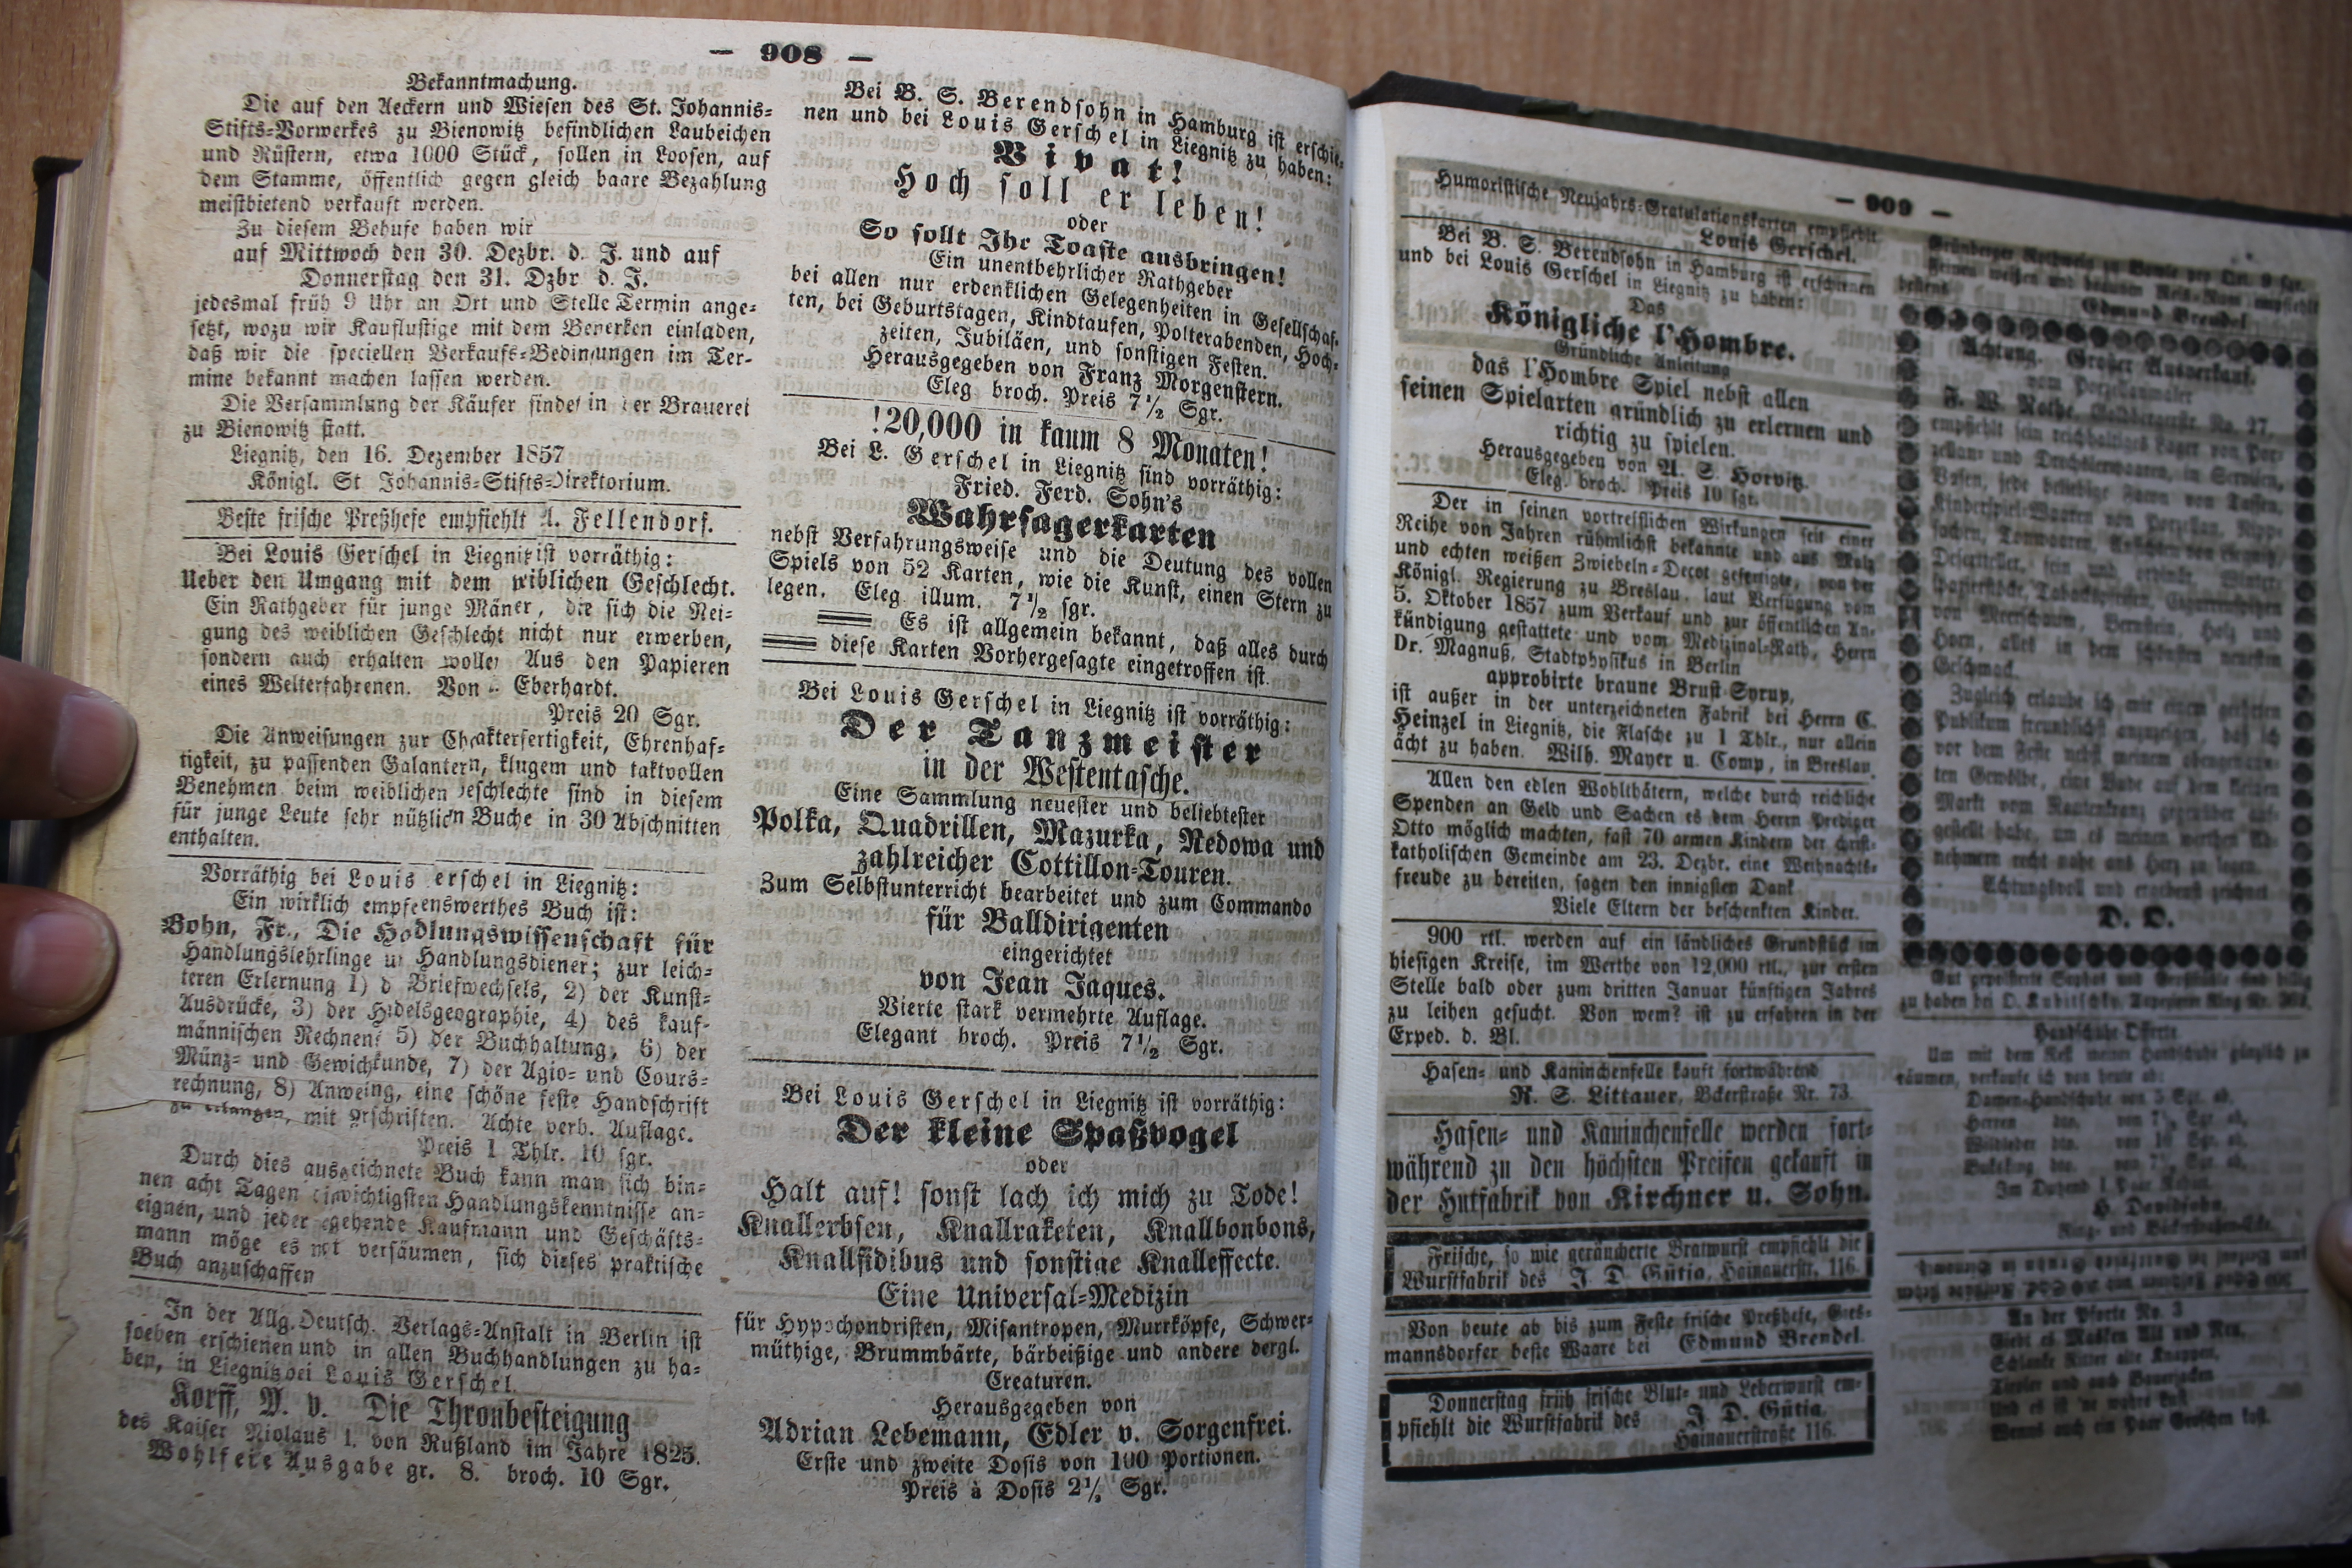 — 908 —
Bekanntmachung.
Die auf den Aeckern und Wiesen des St. Johannis-
Stifts-Vorwerkes zu Bienowitz befindlichen Laubeichen
und Rüstern, etwa 1000 Stück, sollen in Loosen, auf
dem Stamme, öffentlich gegen gleich baare Bezahlung
meistbietend verkauft werden.
Zu diesem Behufe haben wir
auf Mittwoch den 30. Dezbr. d. J. und auf
Donnerstag den 31. Dzbr d. J.
jedesmal früh 9 Uhr an Ort und Stelle Termin ange-
setzt, wozu wir Kauflustige mit dem Bemerken einladen,
daß wir die speciellen Verkaufs-Bedingungen im Ter-
mine bekannt machen lassen werden.
Die Versammlung der Käufer findet in der Brauerei
zu Bienowitz statt.
Liegnitz, den 16. Dezember 1857
Königl. St Johannis-Stifts-Direktorium.
Beste frische Preßhefe empfiehlt A. Fellendorf.
Bei Louis Gerschel in Liegnitz ist vorräthig:
Ueber den Umgang mit dem weiblichen Geschlecht.
Ein Rathgeber für junge Mäner, die sich die Nei-
gung des weiblichen Geschlecht nicht nur erwerben,
sondern auch erhalten wollen Aus den Papieren
eines Welterfahrenen. Von Eberhardt.
Preis 20 Sgr.
Die Anweisungen zur Chakterfertigkeit, Ehrenhaf-
tigkeit, zu passenden Galantern, klugem und taktvollen
Benehmen beim weiblichen Geschlechte sind in diesem
für junge Leute sehr nützlichn Buche in 30 Abschnitten
enthalten.
Vorräthig bei Louis erschel in Liegnitz:
Ein wirklich empfeenswerthes Buch ist:
Bohn, Fr., Die Hodlungswissenschaft für
Handlungslehrlinge u Handlungsdiener; zur leich-
teren Erlernung 1) d Briefwechsels, 2) der Kunst-
Ausdrücke, 3) der Hdelsgeographie, 4) des kauf-
männischen Rechnens 5) der Buchhaltung, 6) der
Münz- und Gewichtkunde, 7) der Agio- und Cours-
rechnung, 8) Anweing, eine schöne feste Handschrift
zu erlangen, mit rschriften. Achte verb. Auflage.
Preis 1 Thlr. 10 sgr.
Durch dies ausgeichnete Buch kann man sich bin-
nen acht Tagen wichtigsten Handlungskenntnisse an-
eignen, und jeder gehende Kaufmann und Geschäfts-
mann möge es nicht versäumen, sich dieses praktische
Buch anzuschaffen
In der Allg. Deutsch. Verlags-Anstalt in Berlin ist
soeben erschienen und in allen Buchhandlungen zu ha-
ben, in Liegnitz bei Louis Gerschel.
Korff, M. v. Die Thronbesteigung
des Kaiser Niolaus I. von Rußland im Jahre 1825.
Wohlfeile Ausgabe gr. 8. broch. 10 Sgr.
Bei B. S. Berendsohn in Hamburg ist erschie-
nen und bei Louis Gerschel in Liegnitz zu haben:
Vivat!
Hoch soll er leben!
oder
So sollt Ihr Toaste ausbringen!
Ein unentbehrlicher Rathgeber
bei allen nur erdenklichen Gelegenheiten in Gesellschaf-
ten, bei Geburtstagen, Kindtaufen, Polterabenden, Hoch-
zeiten, Jubiläen, und sonstigen Festen.
Herausgegeben von Franz Morgenstern.
Eleg. broch. Preis 7½ Sgr.
!20,000 in kaum 8 Monaten!
Bei L. Gerschel in Liegnitz sind vorräthig:
Fried. Ferd. Sohn's
Wahrsagerkarten
nebst Verfahrungsweise und die Deutung des vollen
Spiels von 52 Karten, wie die Kunst, einen Stern zu
legen. Eleg. illum. 7½ sgr.
Es ist allgemein bekannt, daß alles durch
diese Karten Vorhergesagte eingetroffen ist.
Bei Louis Gerschel in Liegnitz ist vorräthig:
Der Tanzmeister
in der Westentasche.
Eine Sammlung neuester und beliebtester
Polka, Quadrillen, Mazurka, Redowa und
zahlreicher Cottillon-Touren.
Zum Selbstunterricht bearbeitet und zum Commando
für Balldirigenten
eingerichtet
von Jean Jaques.
Vierte stark vermehrte Auflage.
Elegant broch. Preis 7½ Sgr.
Bei Louis Gerschel in Liegnitz ist vorräthig:
Der kleine Spaßvogel
oder
Halt auf! sonst lach ich mich zu Tode!
Knallerbsen, Knallraketen, Knallbonbons,
Knallfidibus und sonstige Knalleffecte.
Eine Universal-Medizin
für Hypochondristen, Misantropen, Murrköpfe, Schwer-
müthige, Brummbärte, bärbeißige und andere dergl.
Creaturen.
Herausgegeben von
Adrian Lebemann, Edler v. Sorgenfrei.
Erste und zweite Dosis von 100 Portionen.
Preis à Dosis 2½ Sgr.
— 909 —
Humoristische Neujahrs-Gratulationskarten empfiehlt
Louis Gerschel.
Bei B. S. Berendsohn in Hamburg ist erschienen
und bei Louis Gerschel in Liegnitz zu haben:
Das
Königliche l'Hombre.
Gründliche Anleitung
das l'Hombre Spiel nebst allen
seinen Spielarten gründlich zu erlernen und
richtig zu spielen.
Herausgegeben von A. S. Horvitz.
Eleg. broch. Preis 10 sgr.
Der in seinen vortrefflichen Wirkungen seit einer
Reihe von Jahren rühmlichst bekannte und aus Malz
und echten weißen Zwiebeln-Decot gefertigte, von der
Königl. Regierung zu Breslau, laut Verfügung vom
5. Oktober 1857 zum Verkauf und zur öffentlichen An-
kündigung gestattete und vom Medizinal-Rath, Herrn
Dr. Magnuß, Stadtphysikus in Berlin
approbirte braune Brust Syrup,
ist außer in der unterzeichneten Fabrik bei Herrn C.
Heinzel in Liegnitz, die Flasche zu 1 Thlr., nur allein
ächt zu haben. Wilh. Mayer u. Comp, in Breslau.
Allen den edlen Wohlthätern, welche durch reichliche
Spenden an Geld und Sachen es dem Herrn Prediger
Otto möglich machten, fast 70 armen Kindern der christ-
katholischen Gemeinde am 23. Dezbr. eine Weihnachts-
freude zu bereiten, sagen den innigsten Dank
Viele Eltern der beschenkten Kinder.
900 rtl. werden auf ein ländliches Grundstück im
hiesigen Kreise, im Werthe von 12,000 rtl., zur ersten
Stelle bald oder zum dritten Januar künftigen Jahres
zu leihen gesucht. Von wem? ist zu erfahren in der
Exped. d. Bl.
Hasen- und Kaninchenfelle kauft fortwährend
R. S. Littauer, Bckerstraße Nr. 73.
Hasen- und Kaninchenfelle werden fort-
während zu den höchsten Preisen gekauft in
der Hutfabrik von Kirchner u. Sohn.
Frische, so wie geräucherte Bratwurst empfiehlt die
Wurstfabrik des J. D. Gütia, Hainauerstr. 116.
Von heute ab bis zum Feste frische Preßhefe, Gies-
mannsdorfer beste Waare bei Edmund Brendel.
Donnerstag früh frische Blut- und Leberwurst em-
pfiehlt die Wurstfabrik des J. D. Gütia.
Hainauerstraße 116.
Edmund Brendel
Achtung. Großer Ausverkauf.
vom Porzellanmaler
F. W. Rothe, Goldbergerstr. No. 27,
empfiehlt sein reichhaltiges Lager von Por-
Vasen, jede beliebige Façon von Tassen,
von Meerschaum, Bernstein, Holz und
Horn, alles in dem schönsten neuesten
Geschmack.
Zugleich erlaube ich mir einem geehrten
Publikum freundlichst anzuzeigen, daß ich
vor dem Feste nebst meinem
ten Gewölbe, eine Bude auf dem kleinen
Markt vom Rautenkranz gegenüber auf-
gestellt habe, um es meinen werthen Ab-
nehmern recht nahe ans Herz zu legen.
Achtungsvoll und ergebenst zeichnet
D. O.
zu haben bei
Handschuhe Offerte
Um mit dem Rest meiner Handschuhe gänzlich zu
räumen, verkaufe ich von heute ab:
Damen-Handschuhe von 5 Sgr. ab,
Herren dto.
Im Dutzend 1 Paar Rabatt.
H. Davidsohn,
Ring- und Bäckerstraßen-Ecke.
An der Pforte No. 3
Giebt es Masken Alt und Neu,
Schlanke Ritter alte Knappen,
Tiroler und auch Bauerjacken
Und es ist 'ne wahre Lust
Wenns auch ein Paar Groschen kost.